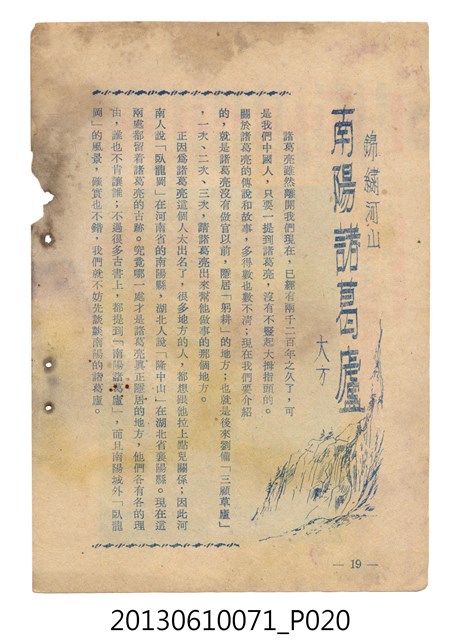 錦繡河山
南陽諸葛廬
大方
諸葛亮雖然離開我們現在,已經有兩千二百年之久了,可
是我們中國人,只要一提到諸葛亮,沒有不豎起大拇指頭的。
關於諸葛亮的傳說和故事,多得數也數不清;現在我們要介紹
的,就是諸葛亮沒有做官以前,隱居「躬耕」的地方;也就是後來劉備「三顧草廬」
,一次、二次、三次,請諸葛亮出來幫他做事的那個地方。
正因為諸葛亮這個人太出名了,很多地方的人,都想跟他拉上點兒關係;因此河
南人說「臥龍岡」在河南省的南陽縣,湖北人說「隆中山」在湖北省襄陽縣。現在這
兩處都留着諸葛亮的古跡。究竟哪一處才是諸葛亮真正隱居的地方,他們各有各的理
由,誰也不肯讓誰;不過很多古書上,都提到「南陽諸葛廬」,而且南陽城外「臥龍
岡」的風景,確實也不錯,我們就不妨先談談南陽的諸葛廬。
— 19 —
20130610071_P020